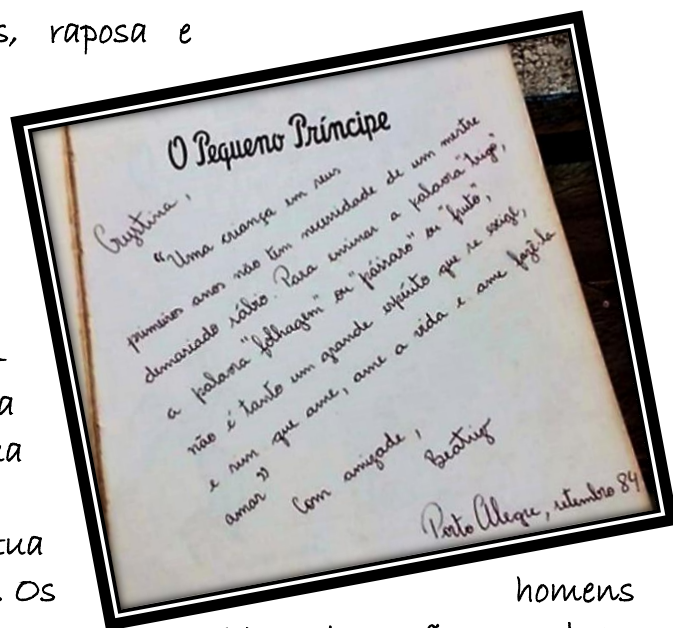 s, raposa e
O Pequeno Príncipe
Crystina,
"Uma criança em seus
primeiros anos não tem necessidade de um mestre
demasiado sábio. Para ensinar a palavra "trigo",
a palavra "folhagem" ou "pássaro" ou "fruto",
não é tanto um grande espírito que se exige,
e sim que ame, ame a vida e ame fazê-la
amar"
Com amizade,
Beatriz
Porto Alegre, setembro 84
a
ea
tua
. Os homens